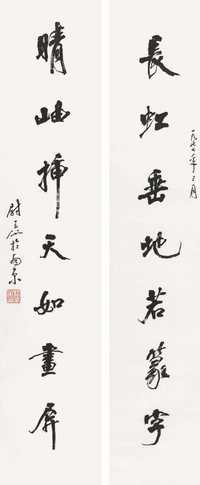 長虹垂地若篆字
晴岫插天如畫屏
尉天池於南京